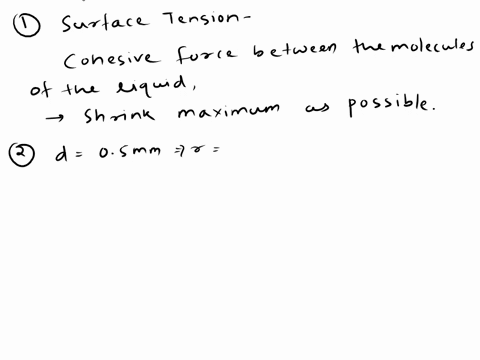 ① Surface Tension-
Cohesive force between the molecules
of the liquid,
→ Shrink maximum as possible.
② d = 0.5mm ⇒ r =